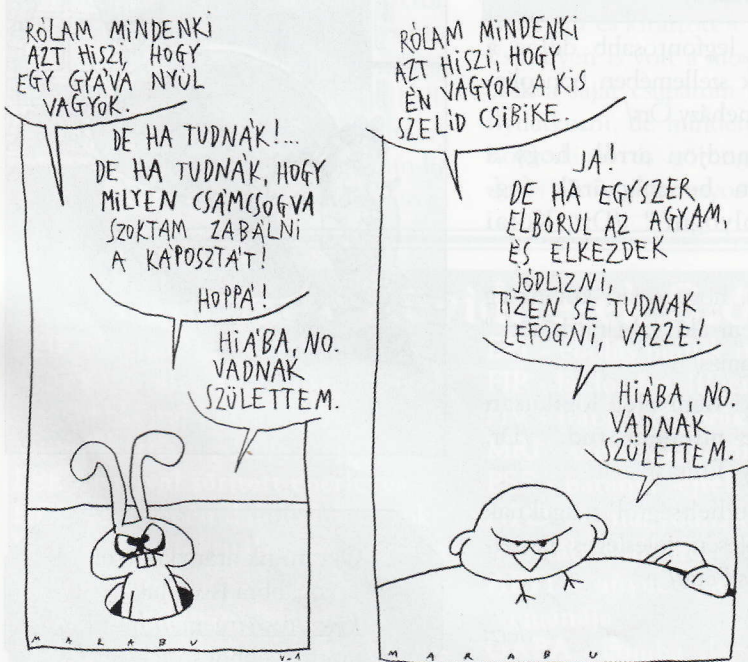 RÓLAM MINDENKI
AZT HISZI, HOGY
EGY GYÁVA NYÚL
VAGYOK.
DE HA TUDNÁK!...
DE HA TUDNÁK, HOGY
MILYEN CSÁMCSOGVA
SZOKTAM ZABÁLNI
A KÁPOSZTÁT!
HOPPÁ!
HIÁBA, NO.
VADNAK
SZÜLETTEM.
MARABU
RÓLAM MINDENKI
AZT HISZI, HOGY
ÉN VAGYOK A KIS
SZELÍD CSIBIKE.
JA!
DE HA EGYSZER
ELBORUL AZ AGYAM,
ÉS ELKEZDEK
JÓDLIZNI,
TÍZEN SE TUDNAK
LEFOGNI, VAZZE!
HIÁBA, NO.
VADNAK
SZÜLETTEM.
MARABU